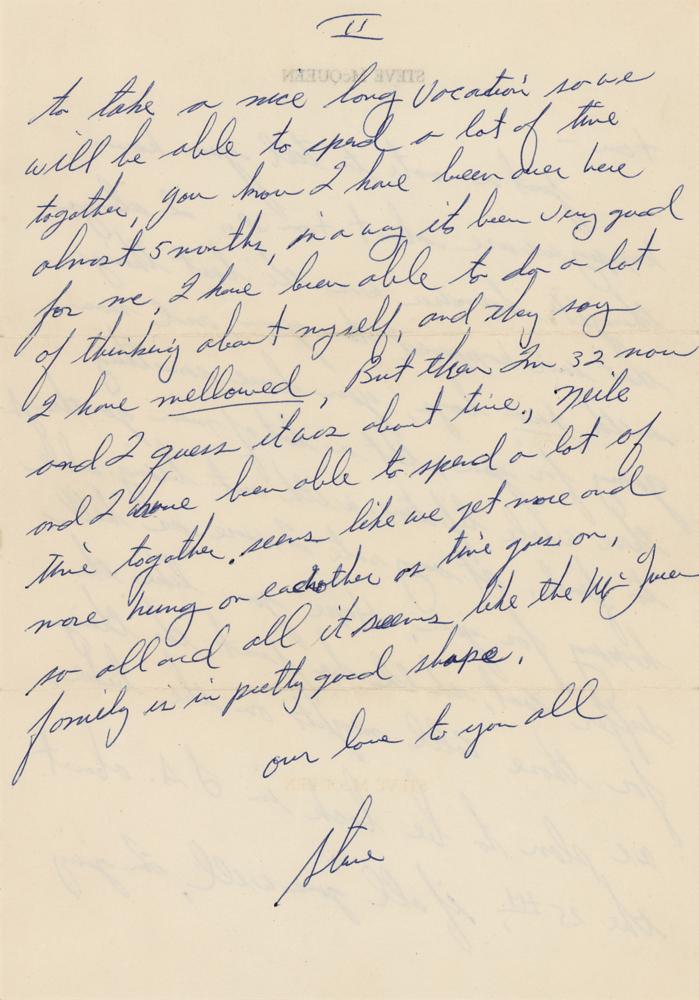 II
STEVE McQUEEN
to take a nice long vacation so we
will be able to spend a lot of time
together, you know I have been over here
almost 5 months, in a way its been very good
for me, I have been able to do a lot
of thinking about myself, and they say
I have mellowed, But then Im 32 now
and I guess it was about time., Neile
and I have been able to spend a lot of
time together. seems like we get more and
more hung on eachother as time goes on,
so all and all it seems like the McQueen
family is in pretty good shape.
our love to you all
Steve